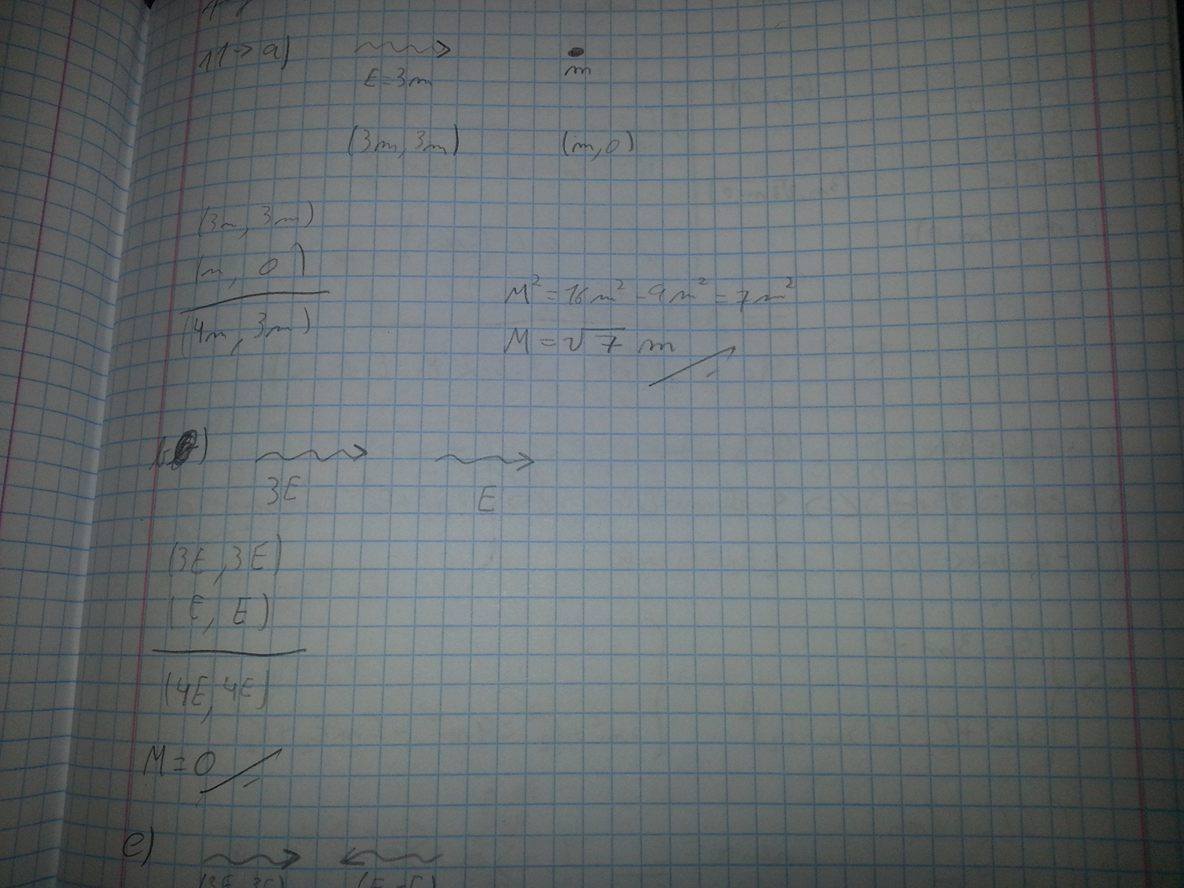 11→ a)
E=3m
m
(3m, 3m) (m, 0)
(3m, 3m)
(m, 0)
(4m, 3m)
M² = 16m² - 9m² = 7m²
M = √7 m
3E E
(3E, 3E)
(E, E)
(4E, 4E)
M = 0
c)
(3E, 3E) (E, -E)